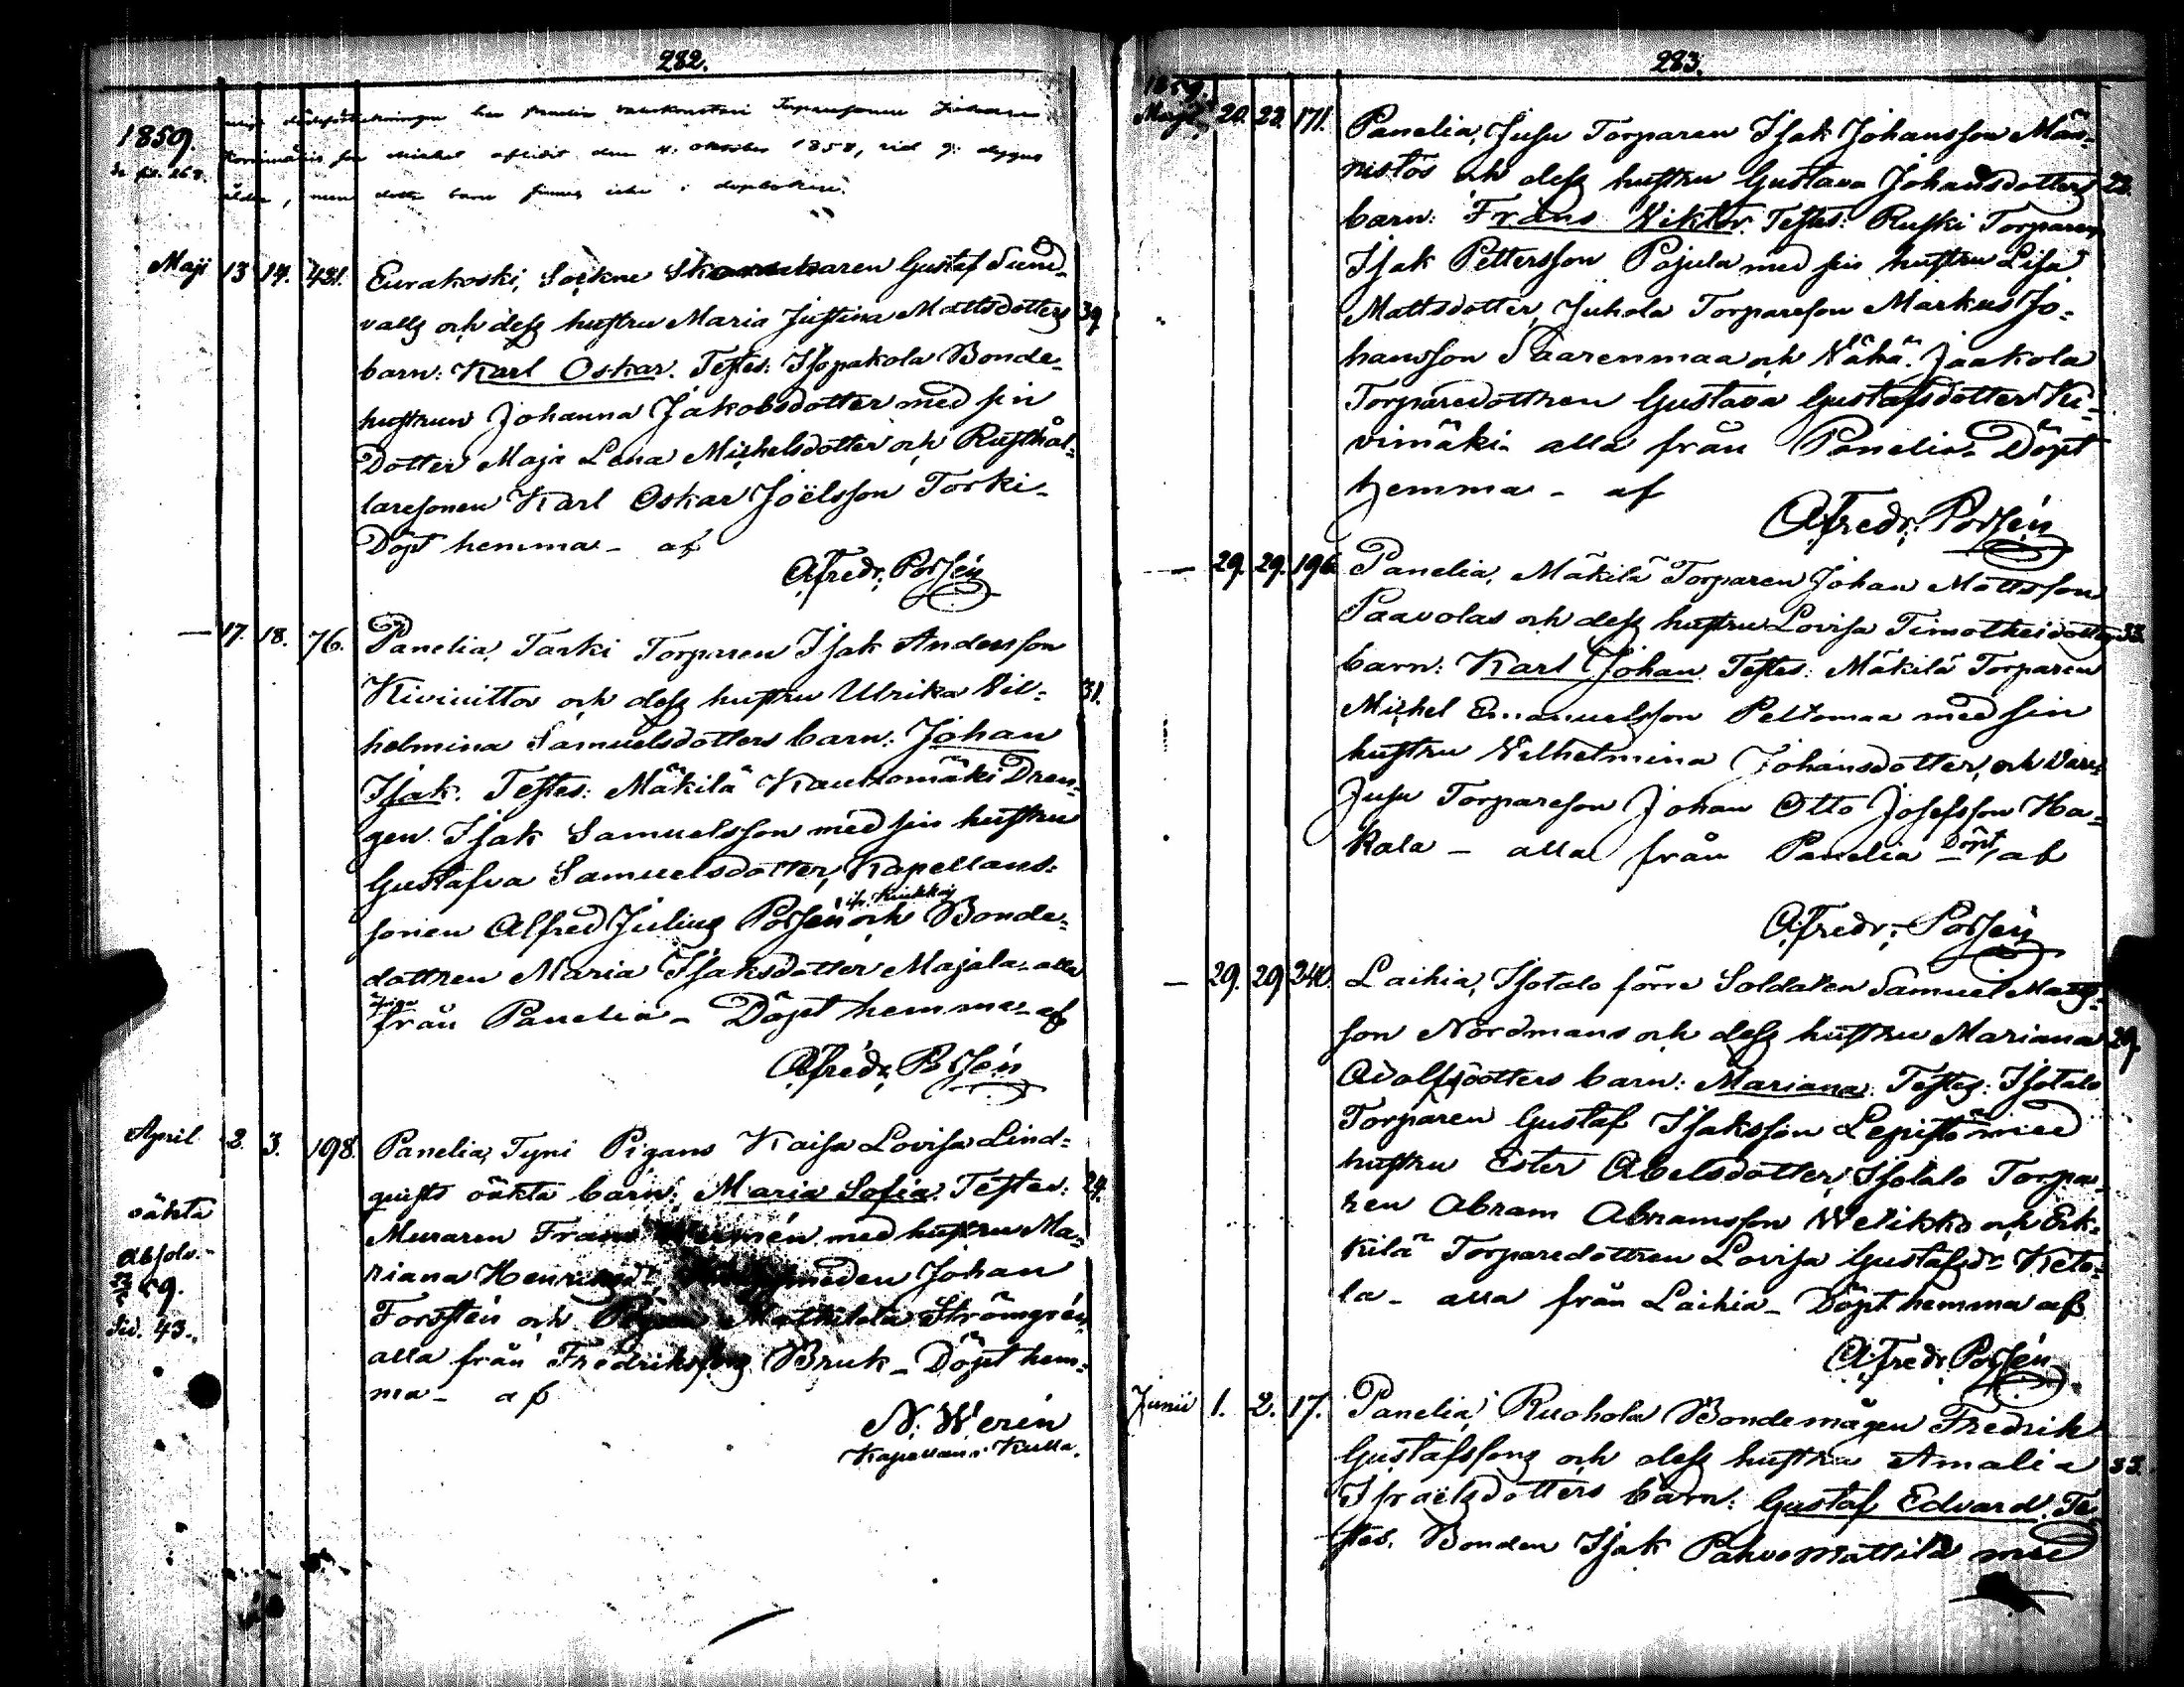 282.
1859.
Se pag. 268.
enligt dödsförteckningen har Panelia Torparesonen Johan
son Michel aflidit den 4: Oktober 1858, vid 9: dygns
ålder, men detta barn finnes icke i dopboken.
Maji 13 14. 421. Eurakoski, Sockne Skomakaren Gustaf Sund-
valls och dess hustru Maria Justina Mattsdotters 39.
barn: Karl Oskar. Testes: Isopakola Bonde-
hustrun Johanna Jakobsdotter med sin
Dotter Maja Lena Michelsdotter och Rusthål-
laresonen Karl Oskar Joëlsson Torki-
Döpt hemma - af
A. Fredr. Polsén
— 17. 18. 76. Panelia, Tarki Torparen Isak Andersson
Kiviniittos och dess hustru Ulrika Vil- 31.
helmina Samuelsdotters barn: Johan
Isak. Testes: Mäkilä Kauttomäki Dren-
gen Isak Samuelsson med sin hustru
Gustafva Samuelsdotter, Kapellans-
sonen Alfred Julius Polsén ifr. Kiukkois och Bonde-
dottren Maria Isaksdotter Majala - alla
öfriga från Panelia - Döpt hemma - af
A. Fredr. Polsén
April 2. 3. 198. Panelia, Tyni Pigans Kaisa Lovisa Lind-
quists oäkta barn: Maria Sofia. Testes: 24.
oäkta
Muraren Frans med hustru Ma-
Absolv.
riana Henriksdr, Johan
59.
Sid. 43.
Forsstén och Pigan Mathilda Strömgrén,
alla från Fredriksfors Bruk - Döpt hem-
ma - af
N: Werén
Kapellan i Kulla.
283.
1859.
Maji 20. 22. 171. Panelia, Jusu Torparen Isak Johansson Män-
nistös och dess hustru Gustava Johansdotters 22.
barn: Frans Viktor. Testes: Ruski Torparen
Isak Pettersson Pajula med sin hustru Lisa
Mattsdotter, Juhola Torpareson Markus Jo-
hansson Saarenmaa och Vähä-Jaakola
Torparedottren Gustava Gustafsdotter Ku-
vimäki - alla från Panelia - Döpt
hemma - af
A. Fredr. Polsén
— 29. 29. 196. Panelia, Mäkilä Torparen Johan Mattsson
Paavolas och dess hustru Lovisa Timotheidotters 33.
barn: Karl Johan. Testes: Mäkilä Torparen
Michel Emanuelsson Peltomaa med sin
hustru Vilhelmina Johansdotter, och
Jusu Torpareson Johan Otto Josefsson Ha-
kala - alla från Panelia - Döpt, af
A. Fredr. Polsén
— 29. 29. 240. Laihia, Isotalo förre Soldaten Samuel Matts-
son Nordmans och dess hustru Mariana 29.
Adolfsdotters barn: Mariana. Testes: Isotalo
Torparen Gustaf Isaksson Lepistö med
hustru Ester Abelsdotter, Isotalo Torpa-
ren Abram Abramsson Welikko och Erk-
kilä Torparedottren Lovisa Gustafsdr Keto-
la - alla från Laihia - Döpt hemma af
A. Fredr. Polsén
Junii 1. 2. 17. Panelia, Ruohola Bondemågen Fredrik
Gustafssons och dess hustru Amalia 33.
Israëlsdotters barn: Gustaf Edvard. Te-
stes. Bonden Isak Pahvo Mattila med